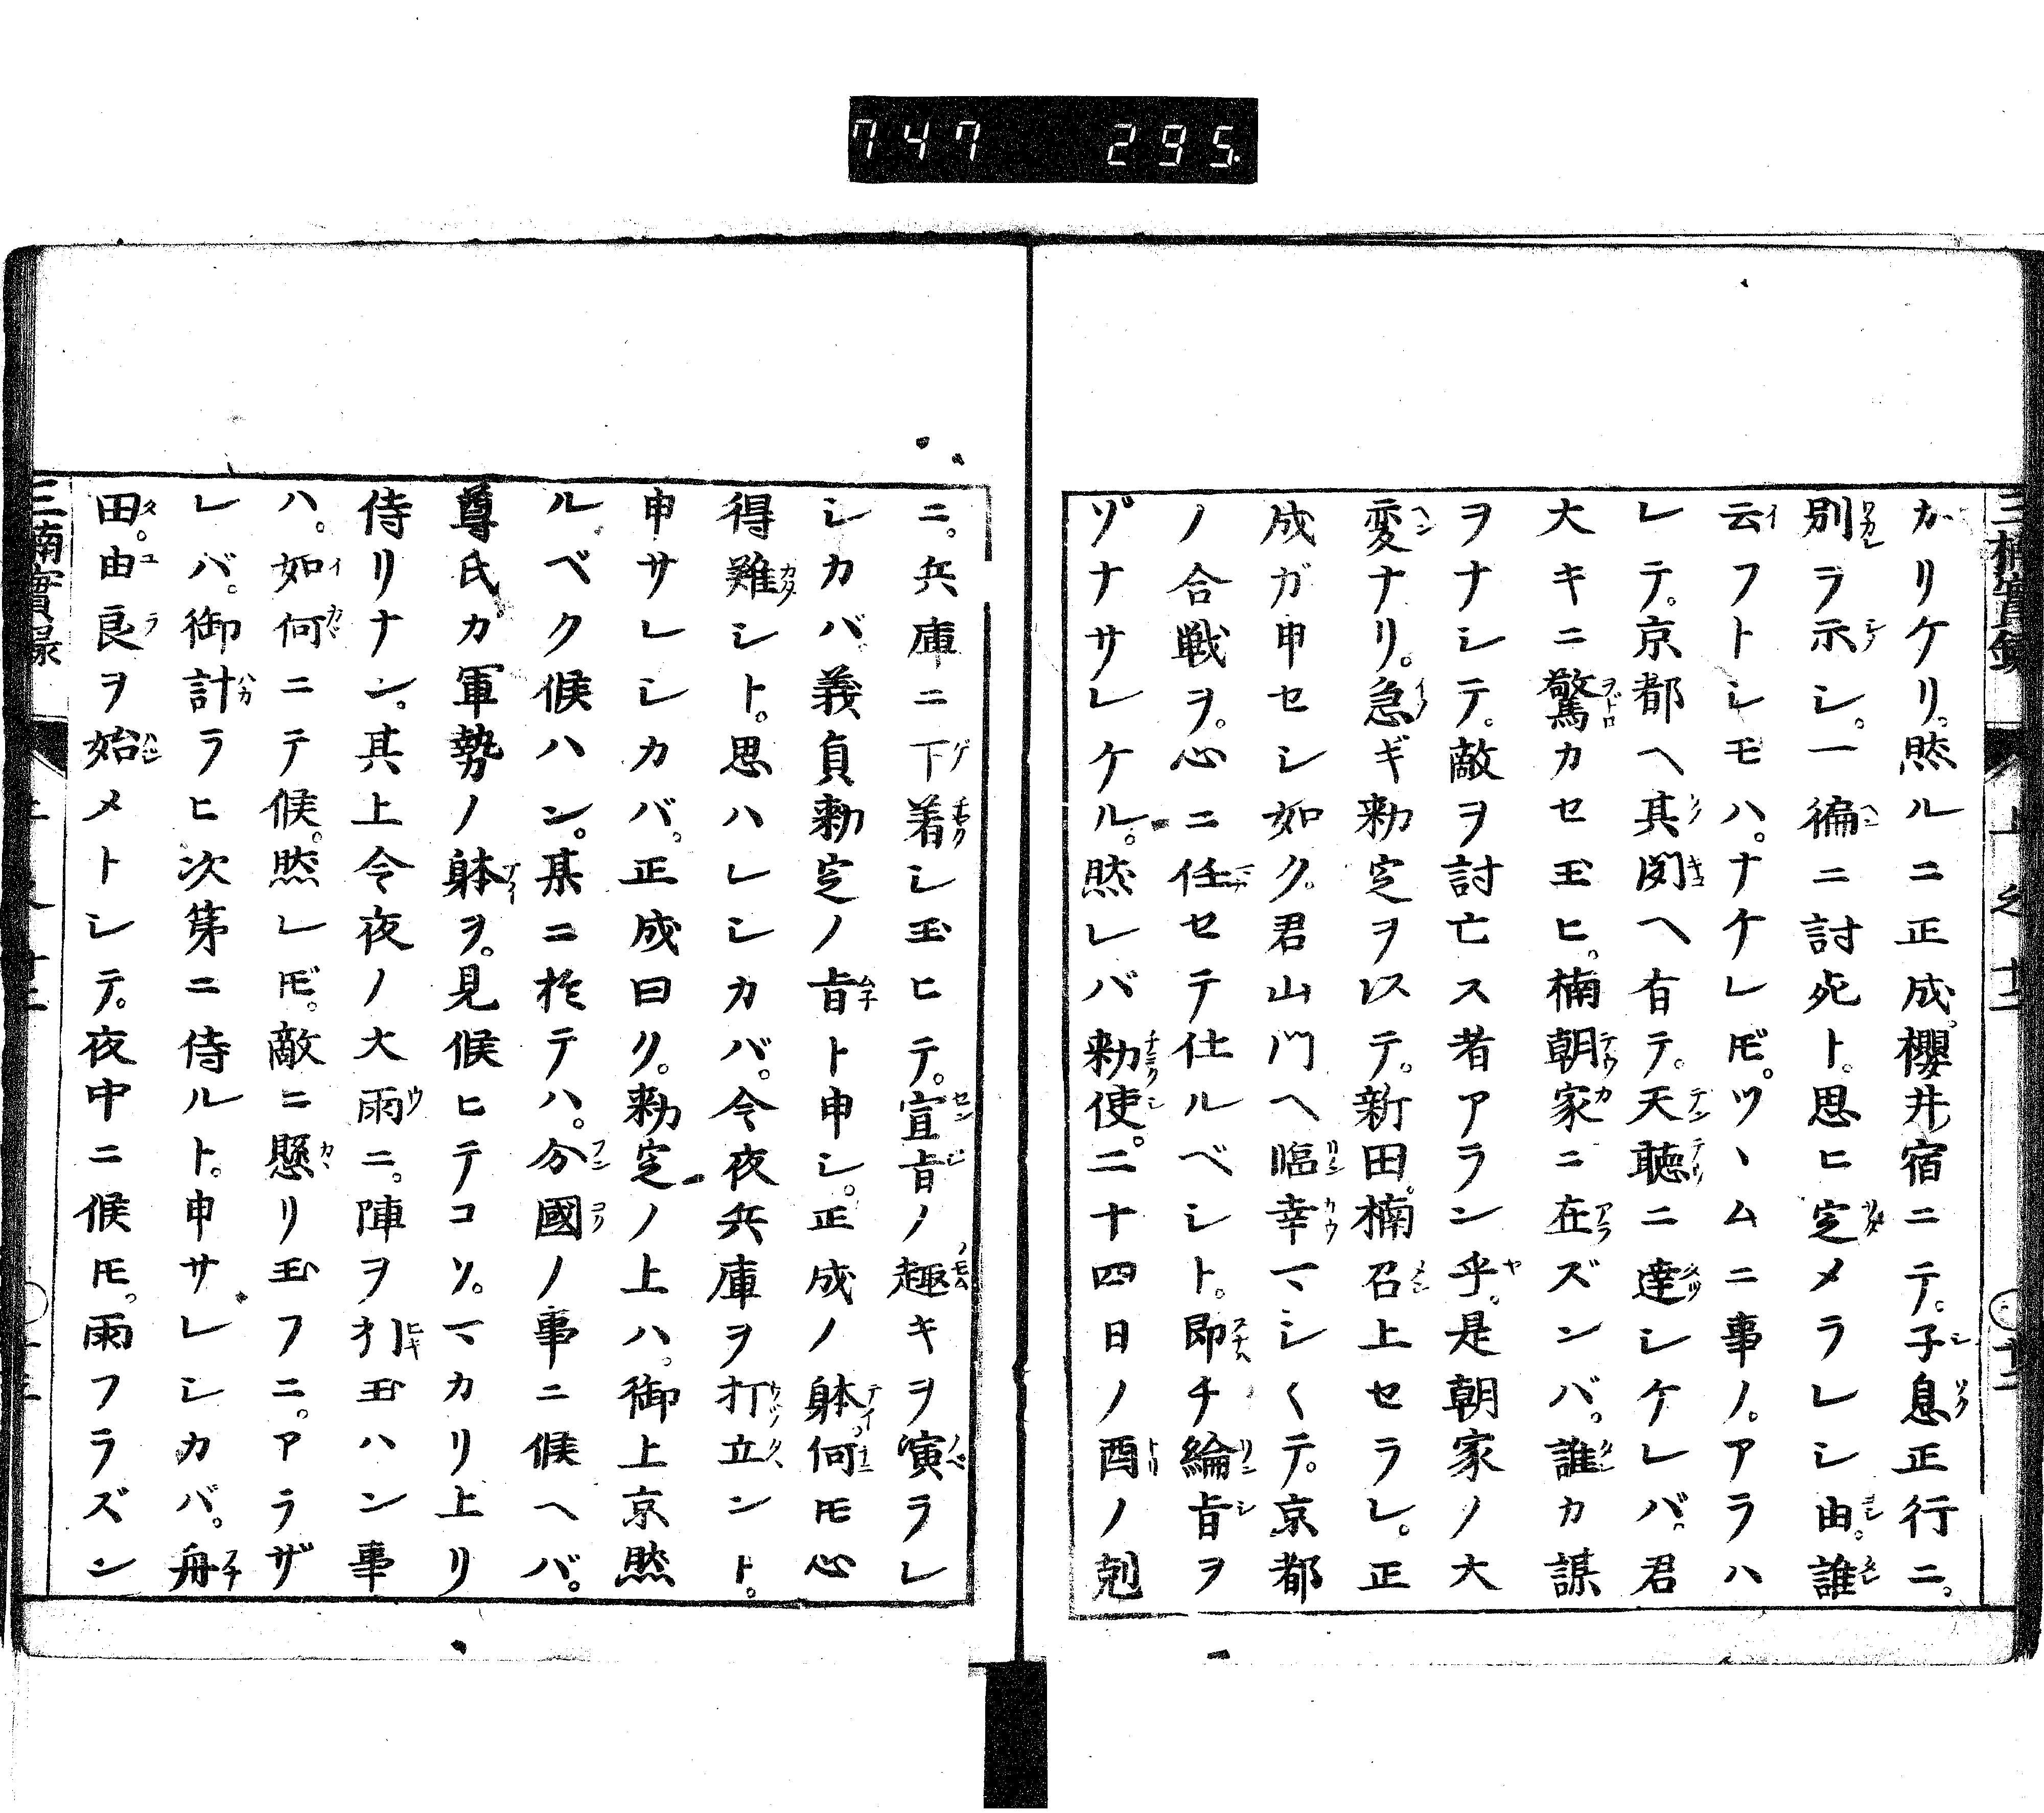 747 295
カリケリ。然ルニ正成。櫻井宿ニテ。子息正行ニ。
別ラ示シ。一徧ニ討死ト。思ヒ定メラレシ由。誰
云フトシモハ。ナケレ𪜈。ツヽムニ事ノ。アラハ
レテ。京都ヘ其聞ヘ有テ。天聴ニ達シケレバ。君
大キニ驚カセ玉ヒ。楠朝家ニ在ズンバ。誰カ謀
ヲナシテ。敵ヲ討亡ス者アラン乎。是朝家ノ大
変ナリ。急ギ勅定ヲ以テ。新田。楠召上セラレ。正
成ガ申セシ如ク。君山門ヘ臨幸マシ〱テ。京都
ノ合戦ヲ。心ニ任セテ仕ルベシト。即チ綸旨ヲ
ゾナサレケル。然レバ勅使。二十四日ノ酉ノ剋
ニ。兵庫ニ下着シ玉ヒテ。宣旨ノ趣キヲ演ラレ
シカバ。義貞勅定ノ旨ト申シ。正成ノ躰。何𪜈心
得難シト。思ハレシカバ。今夜兵庫ヲ打立ント。
申サレシカバ。正成曰ク。勅定ノ上ハ。御上京然
ルベク候ハン。某ニ於テハ。分國ノ事ニ候ヘバ。
尊氏カ軍勢ノ躰ヲ。見候ヒテコソ。マカリ上リ
侍リナン。其上今夜ノ大雨ニ。陣ヲ引玉ハン事
ハ。如何ニテ候。然レ𪜈。敵ニ懸リ玉フニ。アラザ
レバ。御計ラヒ次第ニ侍ルト。申サレシカバ。舟
田。由良ヲ始メトシテ。夜中ニ候𪜈。雨フラズン
三楠實録